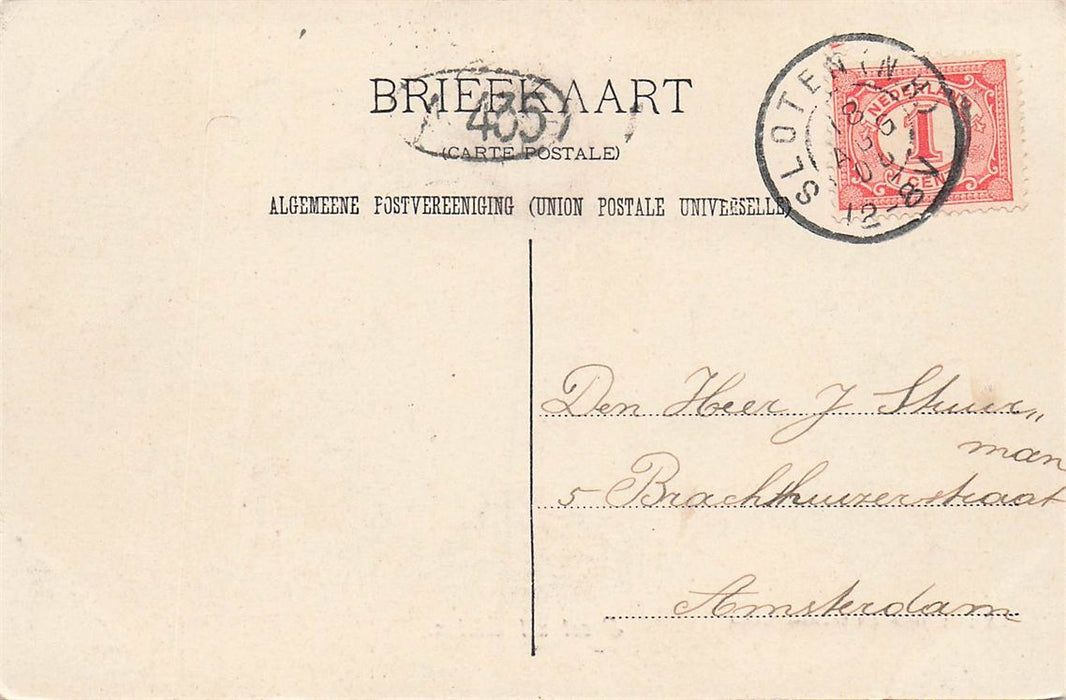 BRIEFKAART
435
(CARTE POSTALE)
ALGEMEENE POSTVEREENIGING (UNION POSTALE UNIVERSELLE)
SLOTEN (N
12-8
NEDERLAND
1
CENT
Den Heer J Stuur„
man
5 Brachthuizerstraat
Amsterdam